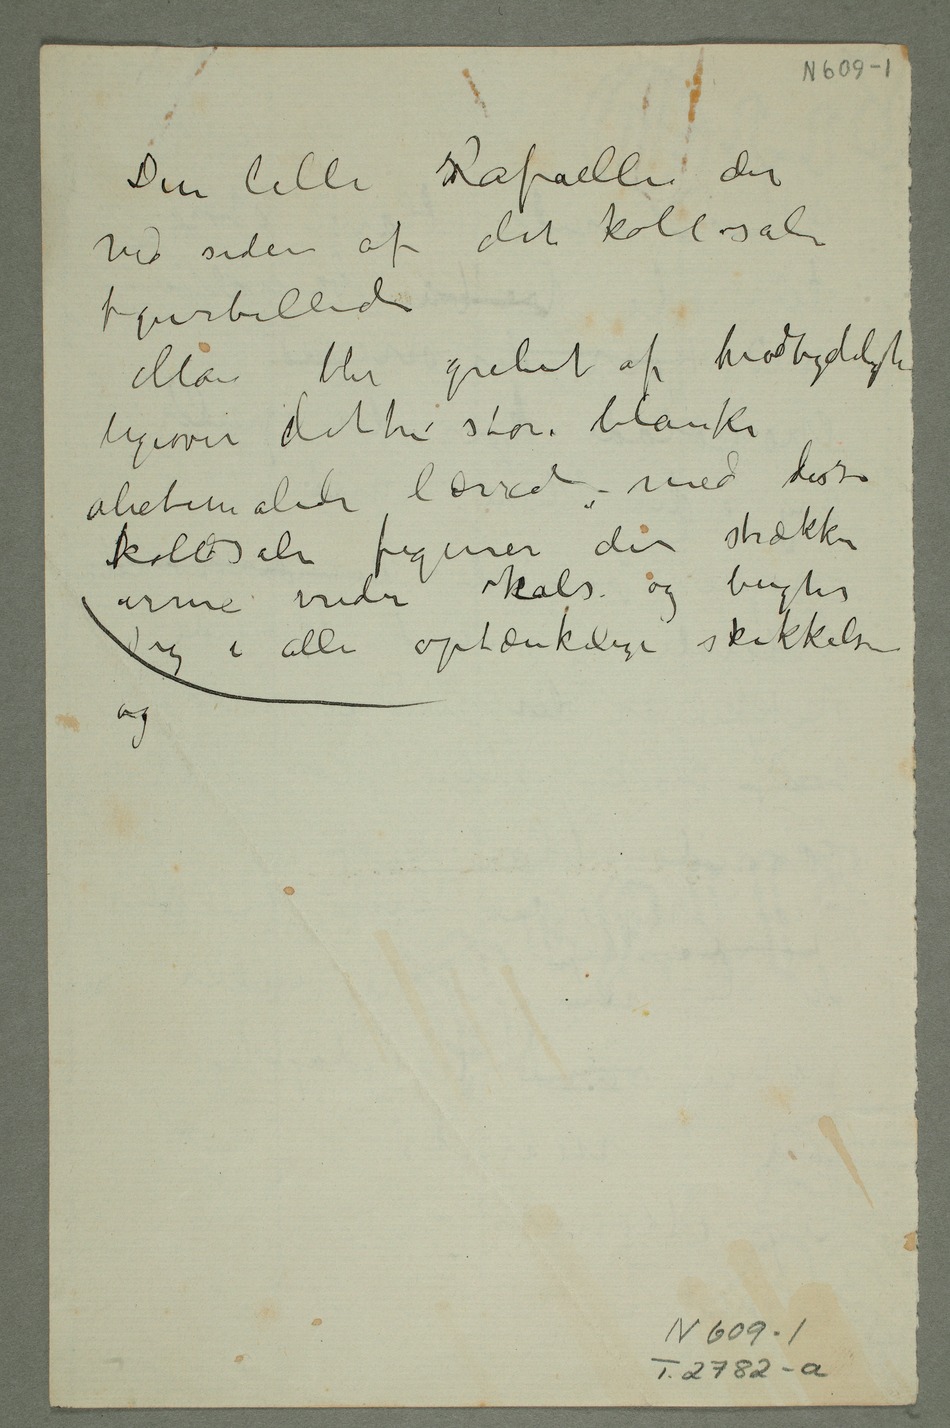 N609-1
Den lille Rafaelli der
ved siden af det kollosale
figurbillede
Man blir grebet af modbydelighe
ligeover dette store blanke
oliebemalede lærred – med disse
kollosale figurer der strækker
arme vrider hals og bugter
sig i alle optænkelige skikkelser
og
N 609-1
T.2782-a